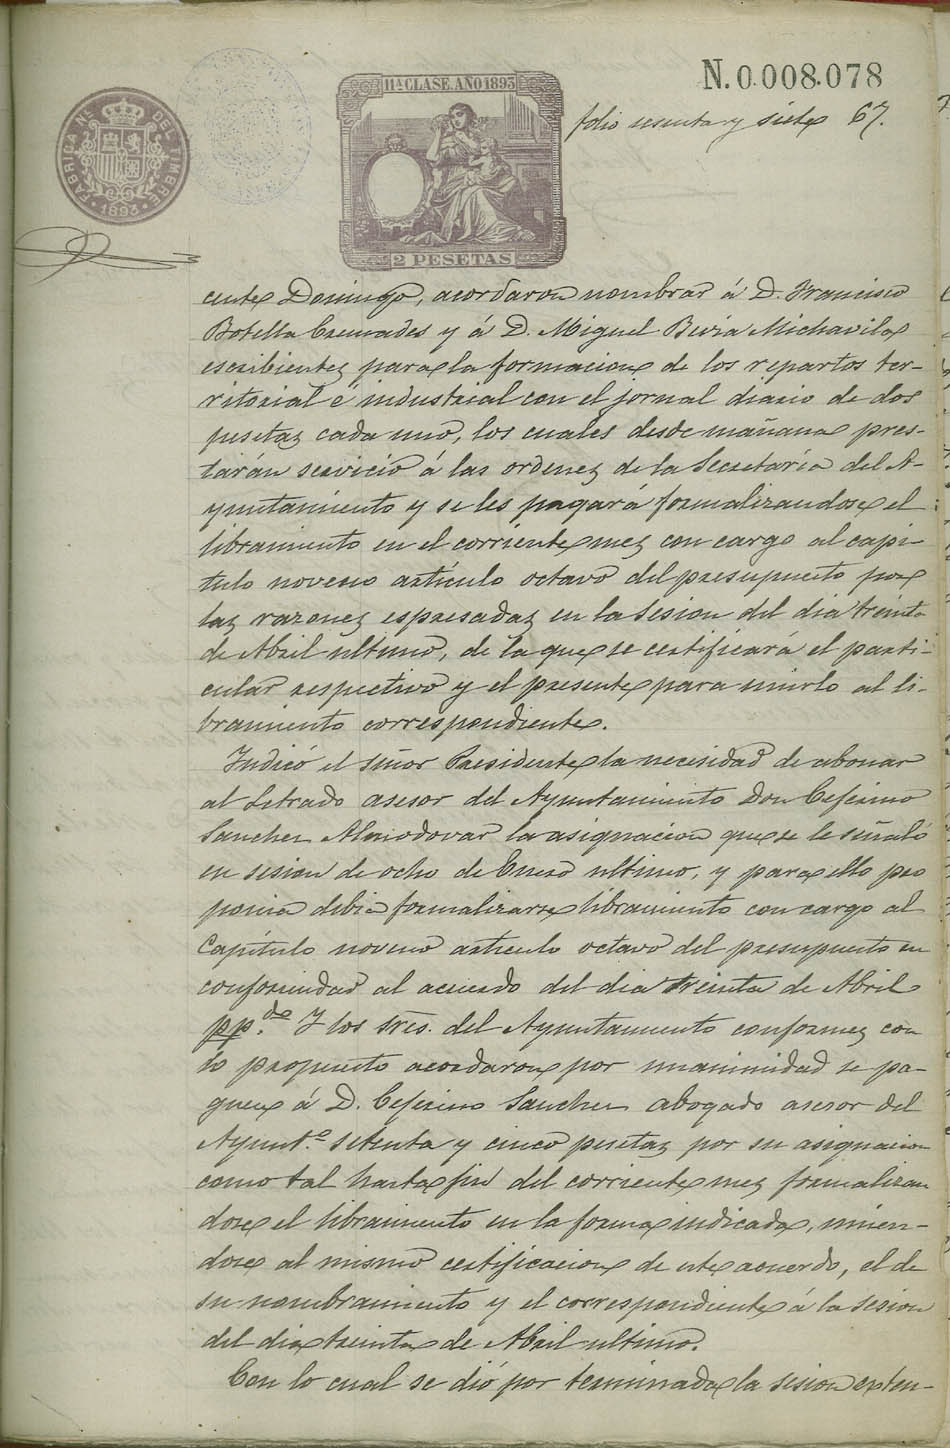 N. 0.008.078
11ª CLASE. AÑO 1893
FABRICA Nal DEL TIMBRE
1893
2 PESETAS
folio sesenta y siete 67.
cente Domingo, acordaron nombrar á D. Francisco
Botella Cremades y á D. Miguel Bevia Michavila
escribientes para la formacion de los repartos ter-
ritorial é industrial con el jornal diario de dos
pesetas cada uno, los cuales desde mañana pres-
tarán servicio á las ordenes de la Secretaría del A-
yuntamiento y se les pagará formalizandose el
libramiento en el corriente mes con cargo al capi-
tulo noveno artículo octavo del presupuesto por
las razones espresadas en la Sesion del dia treinta
de Abril ultimo, de la que se certificará el parti-
cular respectivo y el presente para unirlo al li-
bramiento correspondiente.
Indicó el señor Presidente la necesidad de abonar
al Letrado asesor del Ayuntamiento Don Ceferino
Sanchez Almodovar la asignacion que se le señaló
en sesion de ocho de Enero ultimo, y para ello pro
ponia debia formalizarse libramiento con cargo al
Capítulo noveno artículo octavo del presupuesto en
conformidad al acuerdo del dia treinta de Abril
pp.do Y los Sres. del Ayuntamiento conformes con
lo propuesto acordaron por unanimidad se pa-
guen á D. Ceferino Sanchez abogado asesor del
Ayunt.o setenta y cinco pesetas por su asignacion
como tal hasta fin del corriente mes formalizan
dose el libramiento en la forma indicada, unien-
dose al mismo certificacion de este acuerdo, el de
su nombramiento y el correspondiente á la sesion
del dia treinta de Abril ultimo.
Con lo cual se dió por terminada la sesion exten-